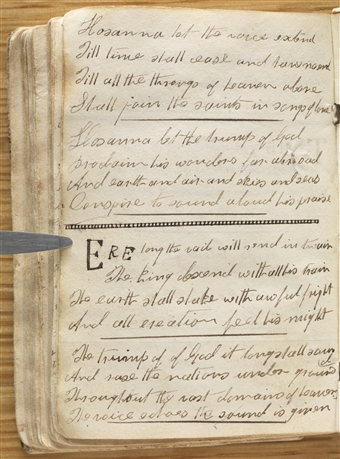 Hosanna let the voice extend
Till time shall cease and have no end
Till all the throngs of heaven above
Shall join the saints in songs of love
Hosanna let the trump of God
Proclaim his wonders far abroad
And earth and air and skies and seas
Conspire to sound aloud his praise
ERE long the vail will rend in twain
The King descend with all his train
The earth shall shake with awful fright
And all creation feel his might
The trump of of God it long shall sound
And raise the nations under ground
Throughout the vast domains of heaven
The voice echoes the sound is given